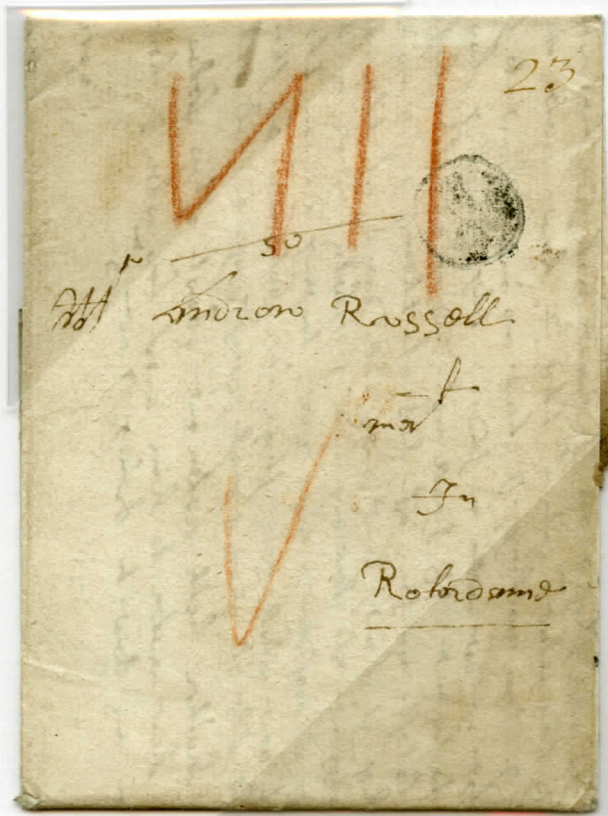 23
VIII
50
Mr Androw Russell
mert
In
Roterdame
V